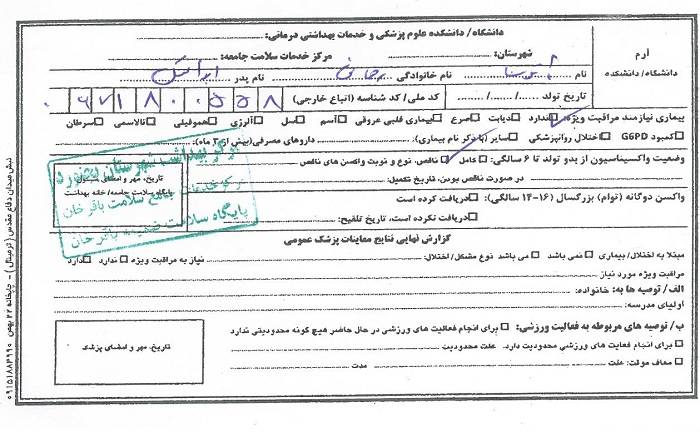 دانشگاه/ دانشکده علوم پزشکی و خدمات بهداشتی درمانی:
آرم
دانشگاه/ دانشکده
شهرستان: مرکز خدمات سلامت جامعه:
نام نام خانوادگی نام پدر
تاریخ تولد ....../....../...... کد ملی/ کد شناسه (اتباع خارجی)
بیماری نیازمند مراقبت ویژه: ندارد دیابت صرع بیماری قلبی عروقی آسم سل آلرژی هموفیلی تالاسمی سرطان
کمبود G6PD اختلال روانپزشکی سایر (با ذکر نام بیماری): داروهای مصرفی (بیش از ۲ ماه):
وضعیت واکسیناسیون از بدو تولد تا ۶ سالگی: کامل ناقص، نوع و نوبت واکسن های ناقص
در صورت ناقص بودن، تاریخ تکمیل:
واکسن دوگانه (توام) بزرگسال (۱۶-۱۴ سالگی): دریافت کرده است
دریافت نکرده است، تاریخ تلقیح:
تاریخ، مهر و امضای مسئول
پایگاه سلامت جامعه/ خانه بهداشت
مرکز بهداشت شهرستان بجنورد
مرکز خدمات جامع سلامت باقرخان
پایگاه سلامت ضمیمه باقرخان
گزارش نهایی نتایج معاینات پزشک عمومی
مبتلا به اختلال/ بیماری نمی باشد می باشد نوع مشکل/ اختلال: نیاز به مراقبت ویژه ندارد دارد
مراقبت ویژه مورد نیاز
الف/ توصیه ها به: خانواده:
اولیای مدرسه:
ب/ توصیه های مربوطه به فعالیت ورزشی: برای انجام فعالیت های ورزشی در حال حاضر هیچ گونه محدودیتی ندارد
برای انجام فعایت های ورزشی محدودیت دارد. علت محدودیت
معاف موقت: علت مدت
تاریخ، مهر و امضای پزشک
نبش میدان دفاع مقدس (ترمینال) - چاپخانه ۲۲ بهمن